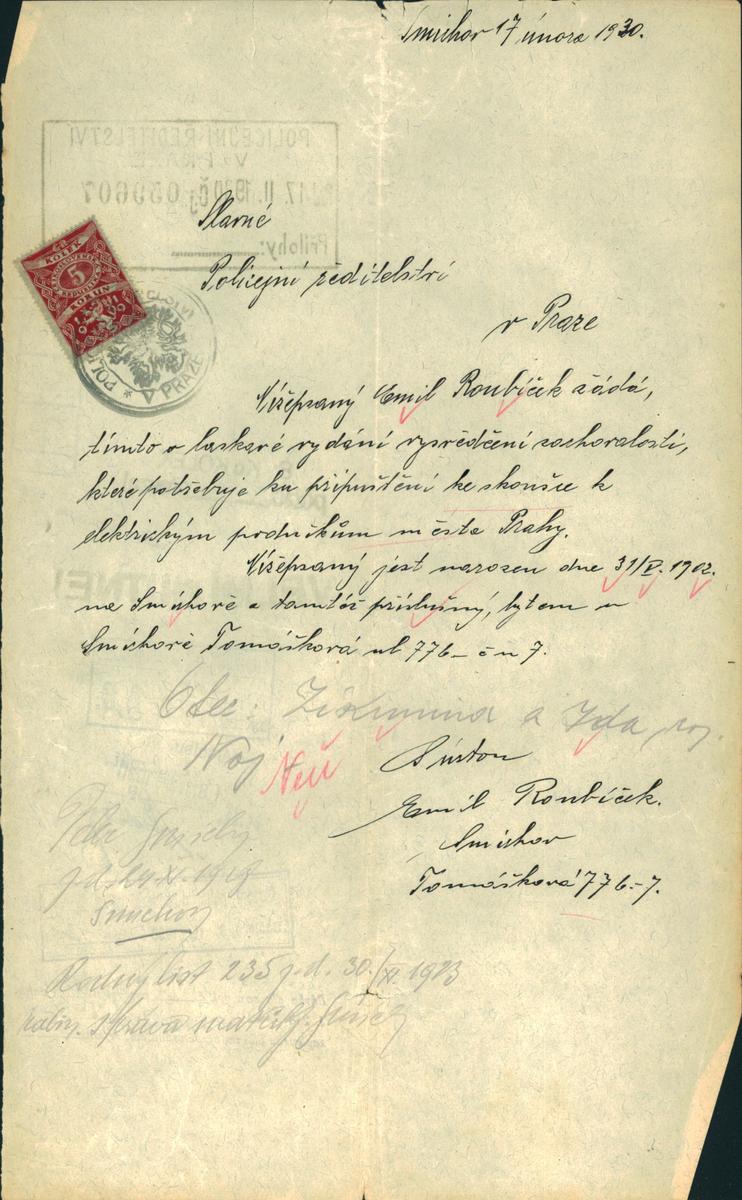 Smíchov 17 února 1930.
Slavné
Policejní ředitelství
v Praze
Nížepsaný Emil Roubíček žádá,
tímto o laskavé vydání vysvědčení zachovalosti,
které potřebuje ku připuštění ke zkoušce k
elektrickým podnikům města Prahy.
Nížepsaný jest narozen dne 31/V. 1902.
na Smíchově a tamtéž příslušný, bytem v
Smíchově Tomášková ul 776 – čn 7.
Otec: Zikmund a Ida, roz.
Neu
V úctou
Emil Roubíček.
Smíchov
Tomášková 776–7.
Smíchov
Rodný list 235 z. d. 30./XI. 1923
správa matriky
KOLEK
5
KORUN
POLICEJNÍ ŘEDITELSTVÍ
V PRAZE
17. II. 1930 čj 059607
Přílohy:
V PRAZE